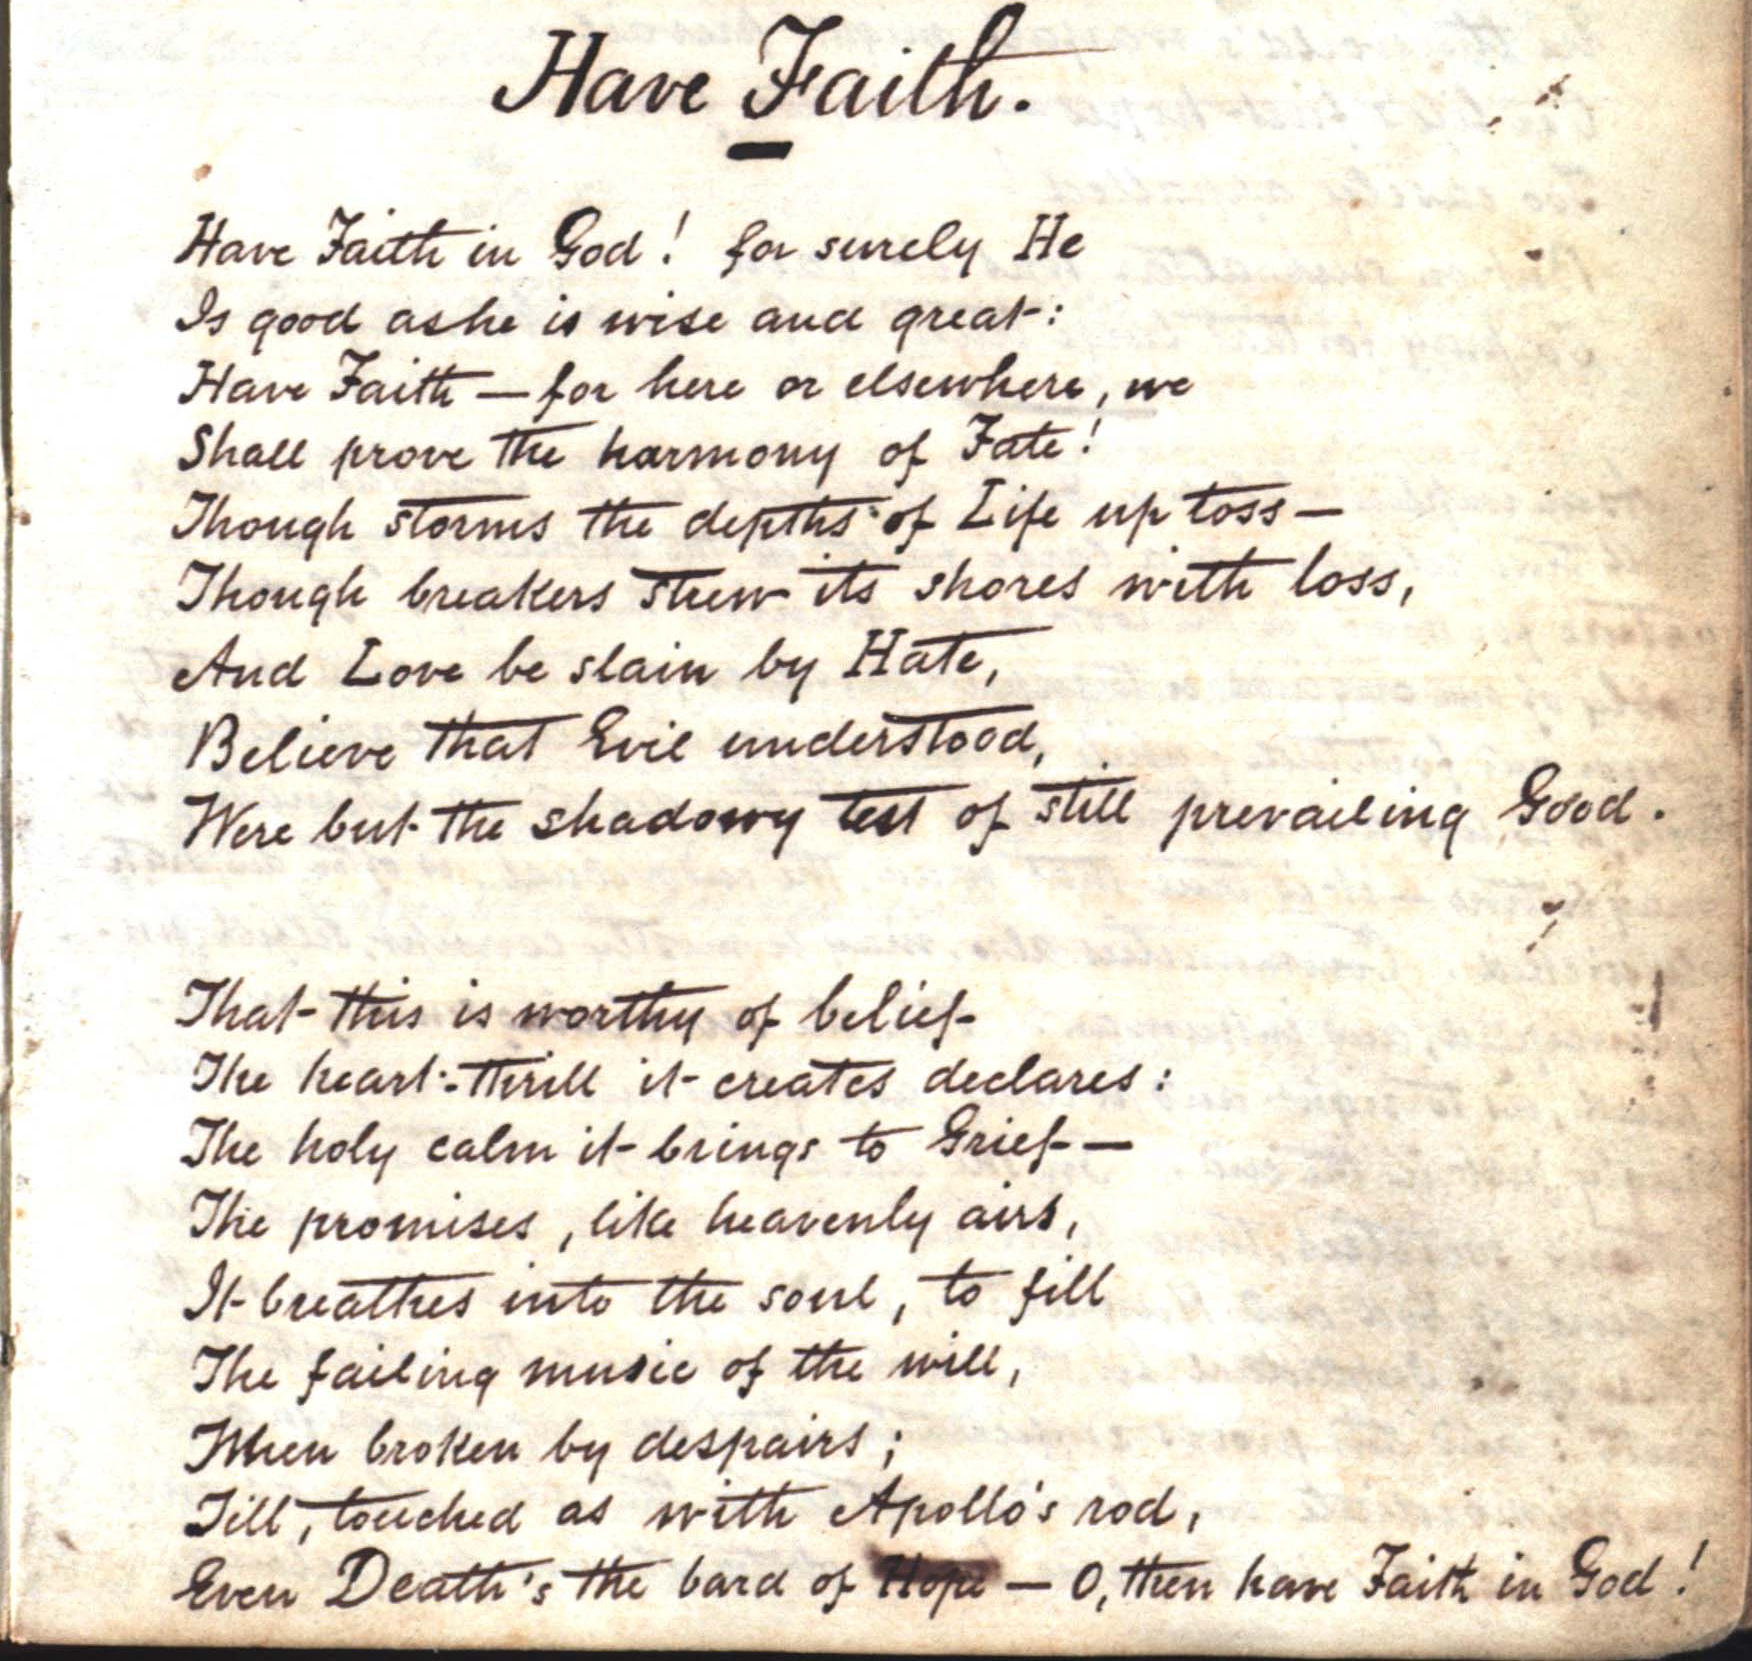 Have Faith.
Have Faith in God! for surely He
Is good as he is wise and great:
Have Faith — for here or elsewhere, we
Shall prove the harmony of Fate!
Though storms the depths of Life up toss —
Though breakers strew its shores with loss,
And Love be slain by Hate,
Believe that Evil understood,
Were but the shadowy test of still prevailing Good.
That this is worthy of belief
The heart-thrill it creates declares:
The holy calm it brings to Grief —
The promises, like heavenly airs,
It breathes into the soul, to fill
The failing music of the will,
When broken by despairs;
Till, touched as with Apollo's rod,
Even Death's the bard of Hope — O, then have Faith in God!